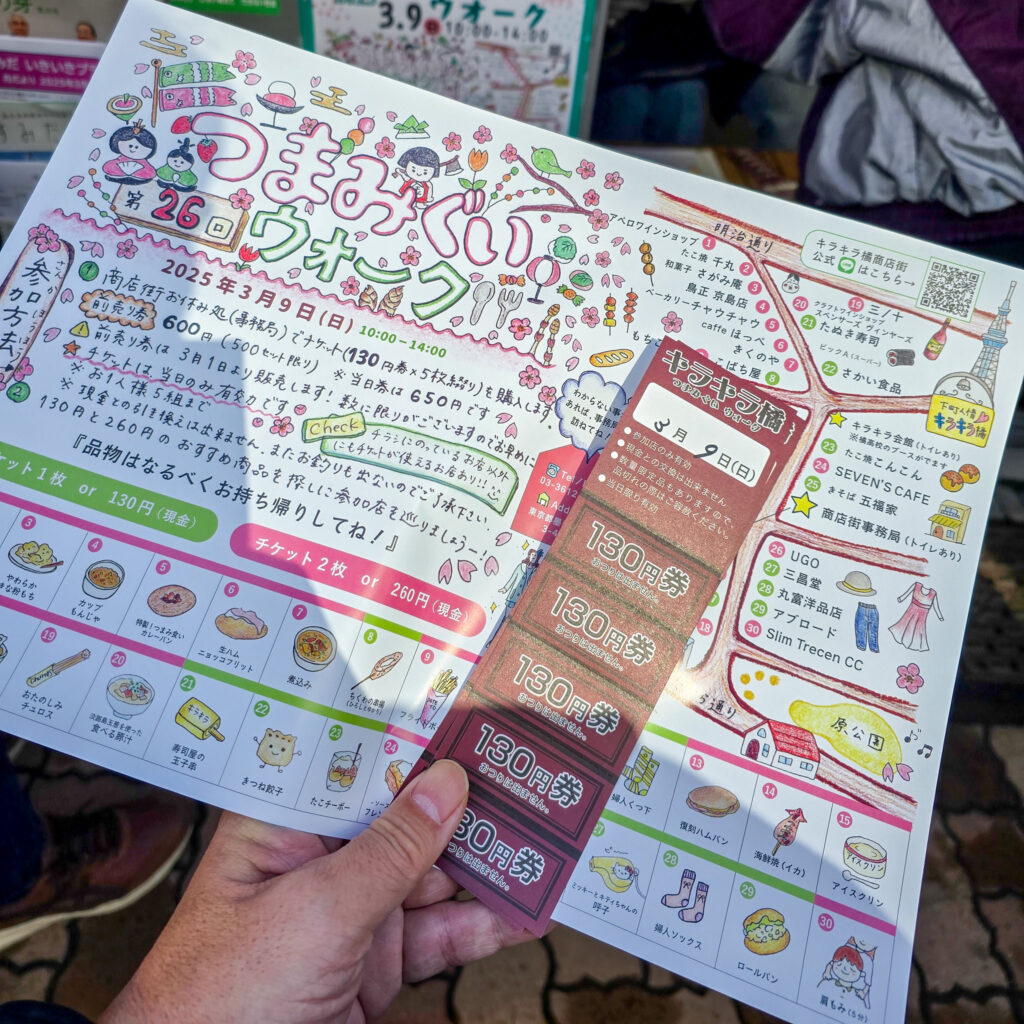 3.9(日) ウオーク
10:00-14:00
つまみぐい
ウオーク
第26回
2025年3月9日(日) 10:00-14:00
参加方法
① 商店街お休み処(事務局)でチケット(130円券×5枚綴り)を購入します。
前売り券 600円(500セット限り) ※当日券は650円です
前売り券は3月1日より販売します!数に限りがございますのでお早めに
★チケットは当日のみ有効です
※お1人様5組まで
※現金との引き換えは出来ません。またお釣りも出ないのでご了承下さい。
② 130円と260円のおすすめ商品を探しに参加店を巡りましょうー!
Check
チラシにのっているお店以外
にもチケットが使えるお店あり!!
『品物はなるべくお持ち帰りしてね!』
わからない事
あれば、事務局
訪ねてね
Tel
03-3612
Add
東京都墨
ケット1枚 or 130円(現金)
チケット2枚 or 260円(現金)
3 やわらか
きな粉もち
4 カップ
もんじゃ
5 特製!つまみ食い
カレーパン
6 生ハム
ニョッコフリット
7 煮込み
8 ちくわの素揚
9
13 復刻ハムパン
14 海鮮焼(イカ)
15 アイスクリン
婦人くつ下
19 おたのしみ
チュロス
20 淡路島玉葱を使った
食べる豚汁
21 寿司屋の
玉子串
22 きつね餃子
23 たこチーボー
24
27 ミッキーとキティちゃんの
呼子
28 婦人ソックス
29 ロールパン
30 肩もみ(5分)
キラキラ橘
つまみぐい ウオーク
3月9日(日)
●参加店のみ有効
●現金との交換は出来ません。
●数量限定品もありますので、
品切れの際はご容赦ください。
●当日限り有効
130円券
おつりは出ません。
130円券
おつりは出ません。
130円券
おつりは出ません。
130円券
おつりは出ません。
30円券
つりは出ません。
明治通り
アペロワインショップ 1
たこ焼 千丸 2
和菓子 さがみ庵 3
鳥正 京島店 4
ベーカリーチャウチャウ 5
caffe ほっぺ 6
きくのや 7
こばち屋 8
キラキラ橘商店街
公式 はこちら→
19 三ノ十
20 クラフトワインショップ
スペンサーズ ヴィンヤーズ
21 たぬき寿司
ビックA(スーパー)
22 さかい食品
下町人情
キラキラ橘
★キラキラ会館(トイレあり)
※橘高校のブースがでます
23 たこ焼こんこん
24 SEVEN'S CAFE
25 きそば 五福家
★商店街事務局(トイレあり)
26 UGO
27 三昌堂
28 丸富洋品店
29 アプロード
30 Slim Trecen CC
18
ら通り
原公園